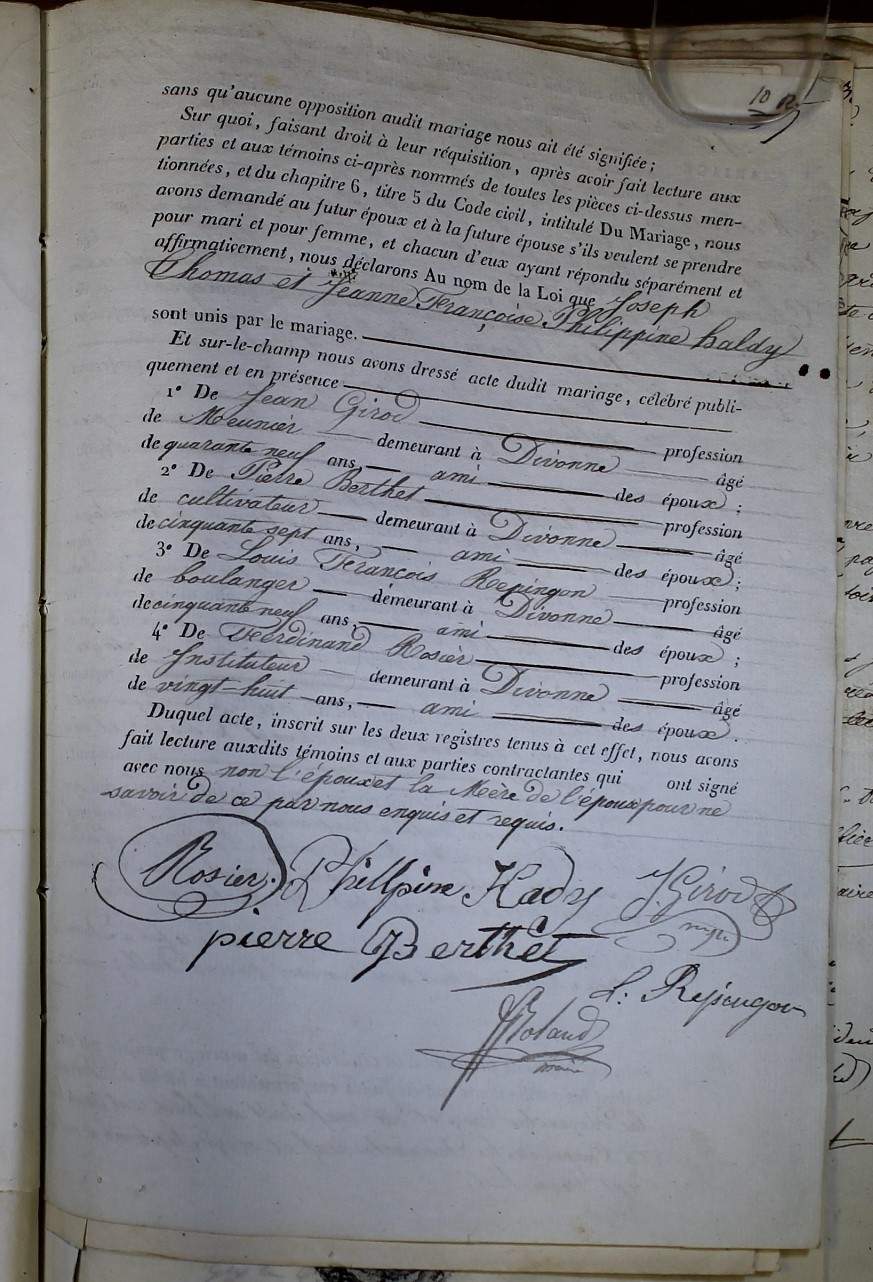 10
sans qu'aucune opposition audit mariage nous ait été signifiée ;
Sur quoi, faisant droit à leur réquisition, après avoir fait lecture aux
parties et aux témoins ci-après nommés de toutes les pièces ci-dessus men-
tionnées, et du chapitre 6, titre 5 du Code civil, intitulé Du Mariage, nous
avons demandé au futur époux et à la future épouse s'ils veulent se prendre
pour mari et pour femme, et chacun d'eux ayant répondu séparément et
affirmativement, nous déclarons Au nom de la Loi que Joseph
Thomas et Jeanne Françoise Philippine haldy
sont unis par le mariage.
Et sur-le-champ nous avons dressé acte dudit mariage, célébré publi-
quement et en présence
1° De Jean Girod profession
de Meunier demeurant à Divonne âgé
de quarante neuf ans, ami des époux ;
2° De Pierre Berthet profession
de cultivateur demeurant à Divonne âgé
de cinquante sept ans, ami des époux ;
3° De Louis François Repingon profession
de boulanger demeurant à Divonne âgé
de cinquante neuf ans, ami des époux ;
4° De Ferdinand Rosier profession
de Instituteur demeurant à Divonne âgé
de vingt-huit ans, ami des époux .
Duquel acte, inscrit sur les deux registres tenus à cet effet, nous avons
fait lecture auxdits témoins et aux parties contractantes qui ont signé
avec nous non l'époux et la Mère de l'époux pour ne
savoir de ce par nous enquis et requis.
Rosier. Phillpine Hady J. Girod
pierre Berthet
l: Repingon
Roland
maire